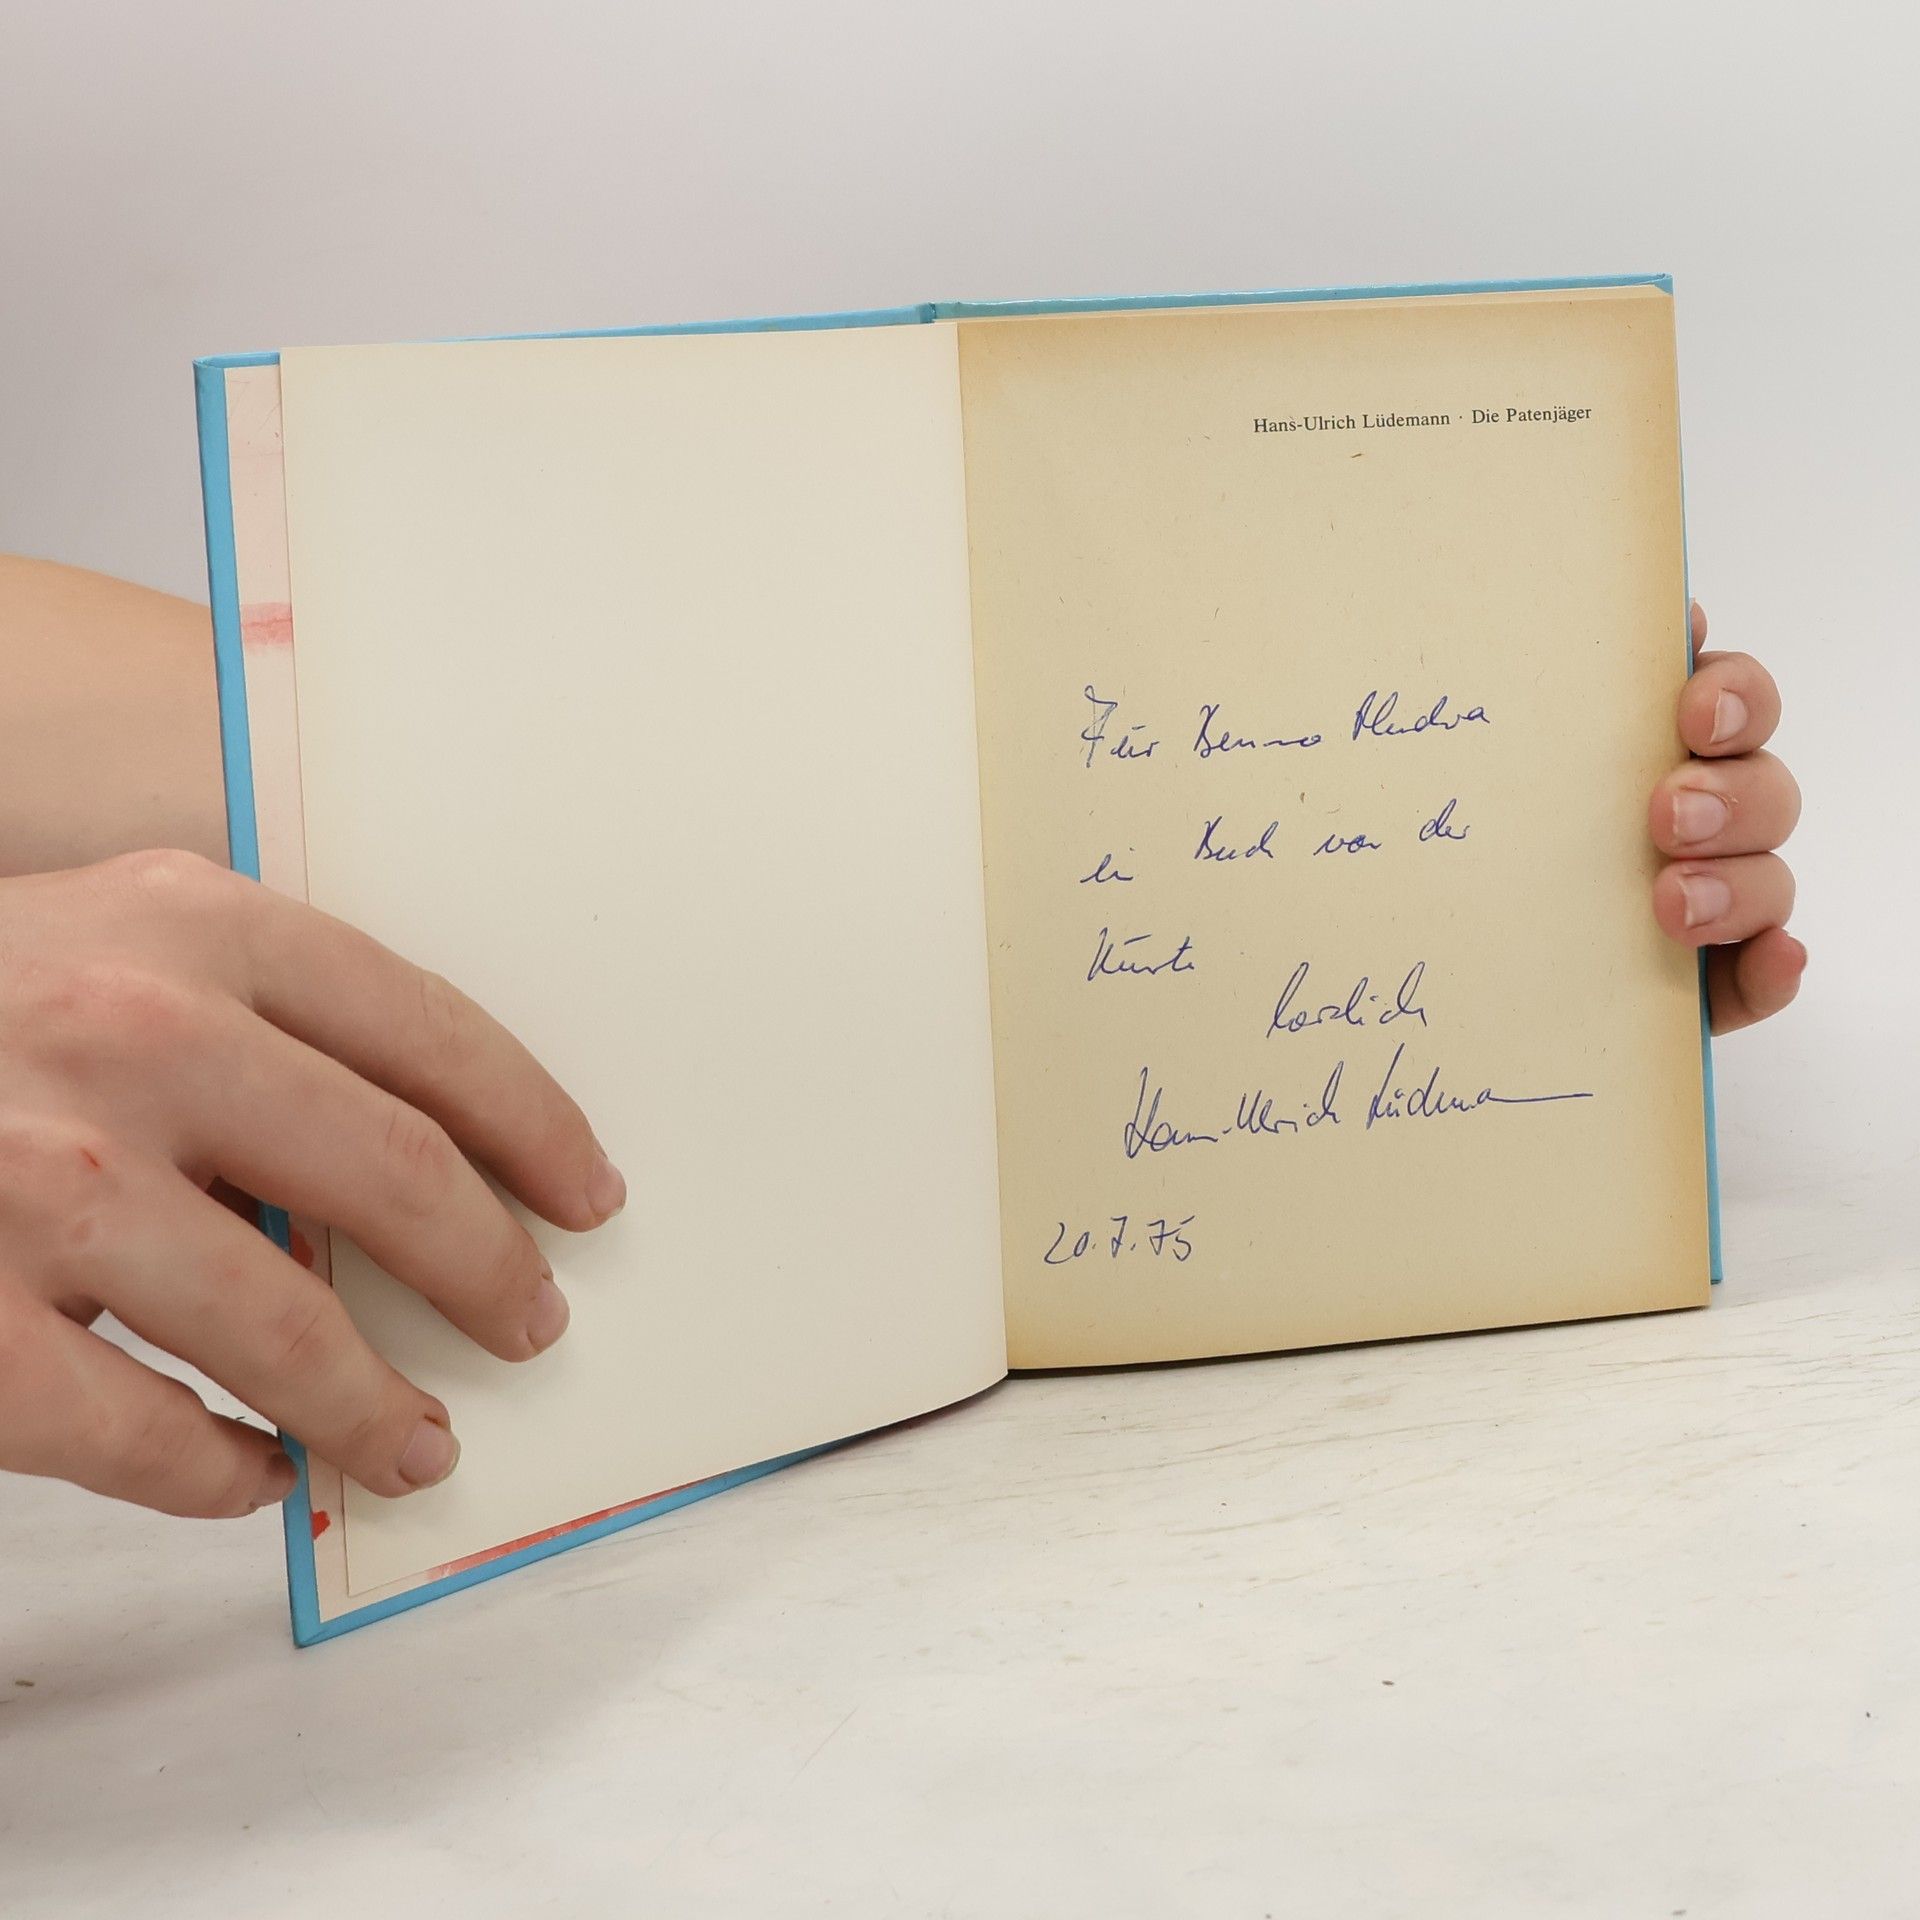 Hans-Ulrich Lüdemann · Die Patenjäger
Für Benno Pludra
ein Buch von der
Küste
herzlich
Hans-Ulrich Lüdemann
20.7.75